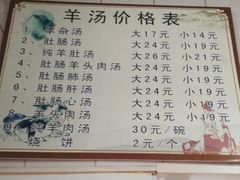 羊汤价格表
1、羊杂汤 大17元 小14元
2、肚肠汤 大24元 小19元
3、纯羊肚汤 大26元 小21元
4、肚肠羊头肉汤 大24元 小19元
5、肚肠肺汤 大24元 小19元
6、肚肠肝汤 大24元 小19元
7、肚肠心汤 大24元 小19元
8、羊头肉汤 大24元 小19元
羊肉汤 30元/碗
烧饼 2元/个